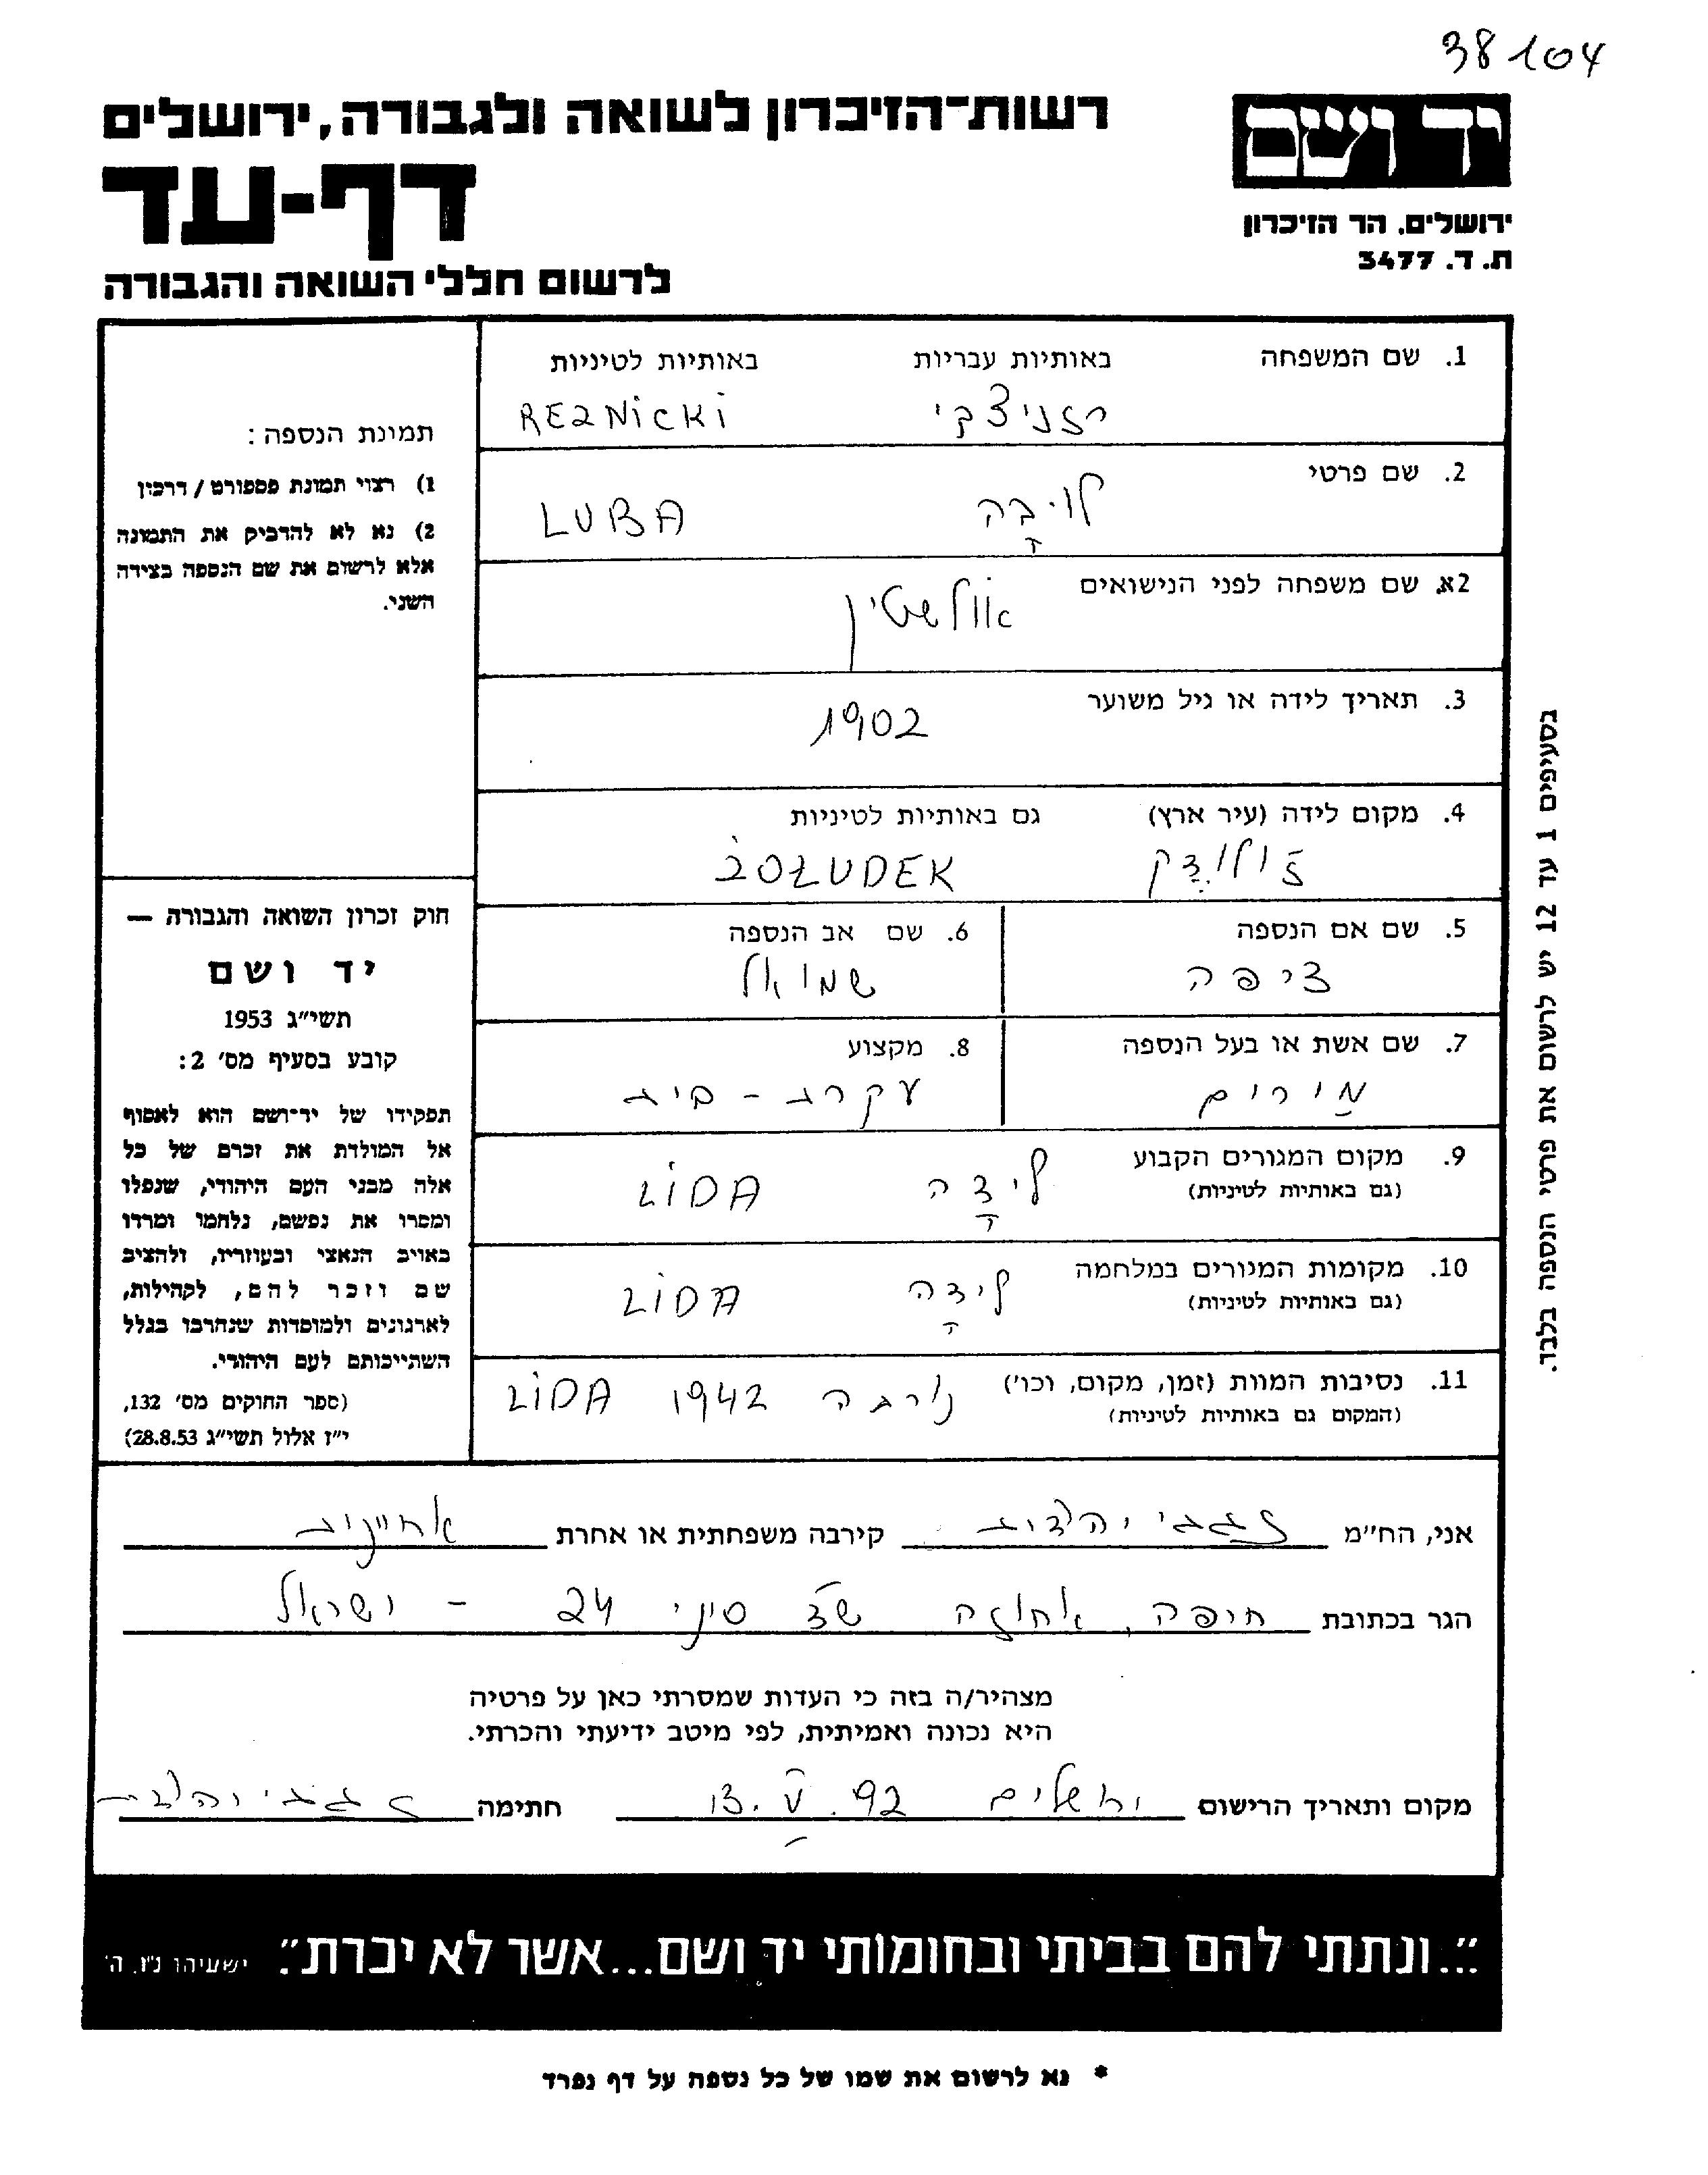 38104
רשות־הזיכרון לשואה ולגבורה, ירושלים
יד ושם
דף-עד
ירושלים. הר הזיכרון
ת. ד. 3477
לרשום חללי השואה והגבורה
1. שם המשפחה באותיות עבריות באותיות לטיניות
רזניצקי REZNiCKi
2. שם פרטי
לויבה LUBA
2א. שם משפחה לפני הנישואים
אולשטין
3. תאריך לידה או גיל משוער
1902
4. מקום לידה (עיר ארץ) גם באותיות לטיניות
ז'ולודק ŻOŁUDEK
5. שם אם הנספה 6. שם אב הנספה
ציפה שמואל
7. שם אשת או בעל הנספה 8. מקצוע
מירים עקרת - בית
9. מקום המגורים הקבוע
(גם באותיות לטיניות)
לידה LiDA
10. מקומות המגורים במלחמה
(גם באותיות לטיניות)
לידה LiDA
11. נסיבות המוות (זמן, מקום, וכו')
(המקום גם באותיות לטיניות)
נורתה 1942 LiDA
תמונת הנספה:
1) רצוי תמונת פספורט / דרכון
2) נא לא להדביק את התמונה
אלא לרשום את שם הנספה בצידה
השני.
חוק זכרון השואה והגבורה —
יד ושם
תשי״ג 1953
קובע בסעיף מס׳ 2:
תפקידו של יד־ושם הוא לאסוף
אל המולדת את זכרם של כל
אלה מבני העם היהודי, שנפלו
ומסרו את נפשם, נלחמו ומרדו
באויב הנאצי ובעוזריו, ולהציב
שם וזכר להם, לקהילות,
לארגונים ולמוסדות שנחרבו בגלל
השתייכותם לעם היהודי.
(ספר החוקים מס׳ 132,
י״ז אלול תשי״ג 28.8.53)
בסעיפים 1 עד 12 יש לרשום את פרטי הנספה בלבד.
אני, הח״מ יהודית קירבה משפחתית או אחרת אחיינית
הגר בכתובת חיפה, אחוזה שד סיני 24 - ישראל
מצהיר/ה בזה כי העדות שמסרתי כאן על פרטיה
היא נכונה ואמיתית, לפי מיטב ידיעתי והכרתי.
מקום ותאריך הרישום ירושלים 13. V. 92 חתימה
״...ונתתי להם בביתי ובחומותי יד ושם...אשר לא יכרת״. ישעיהו נ״ו. ה׳
* נא לרשום את שמו של כל נספה על דף נפרד